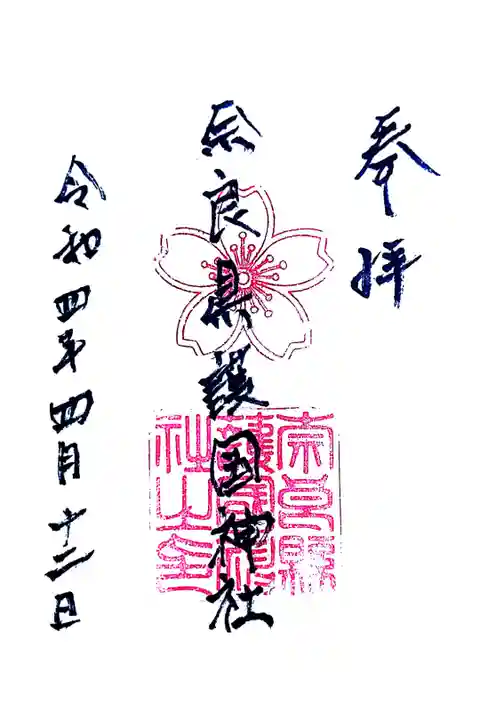 奉拝
奈良県護国神社
令和四年四月十二日
奈良縣
護國神
社之印